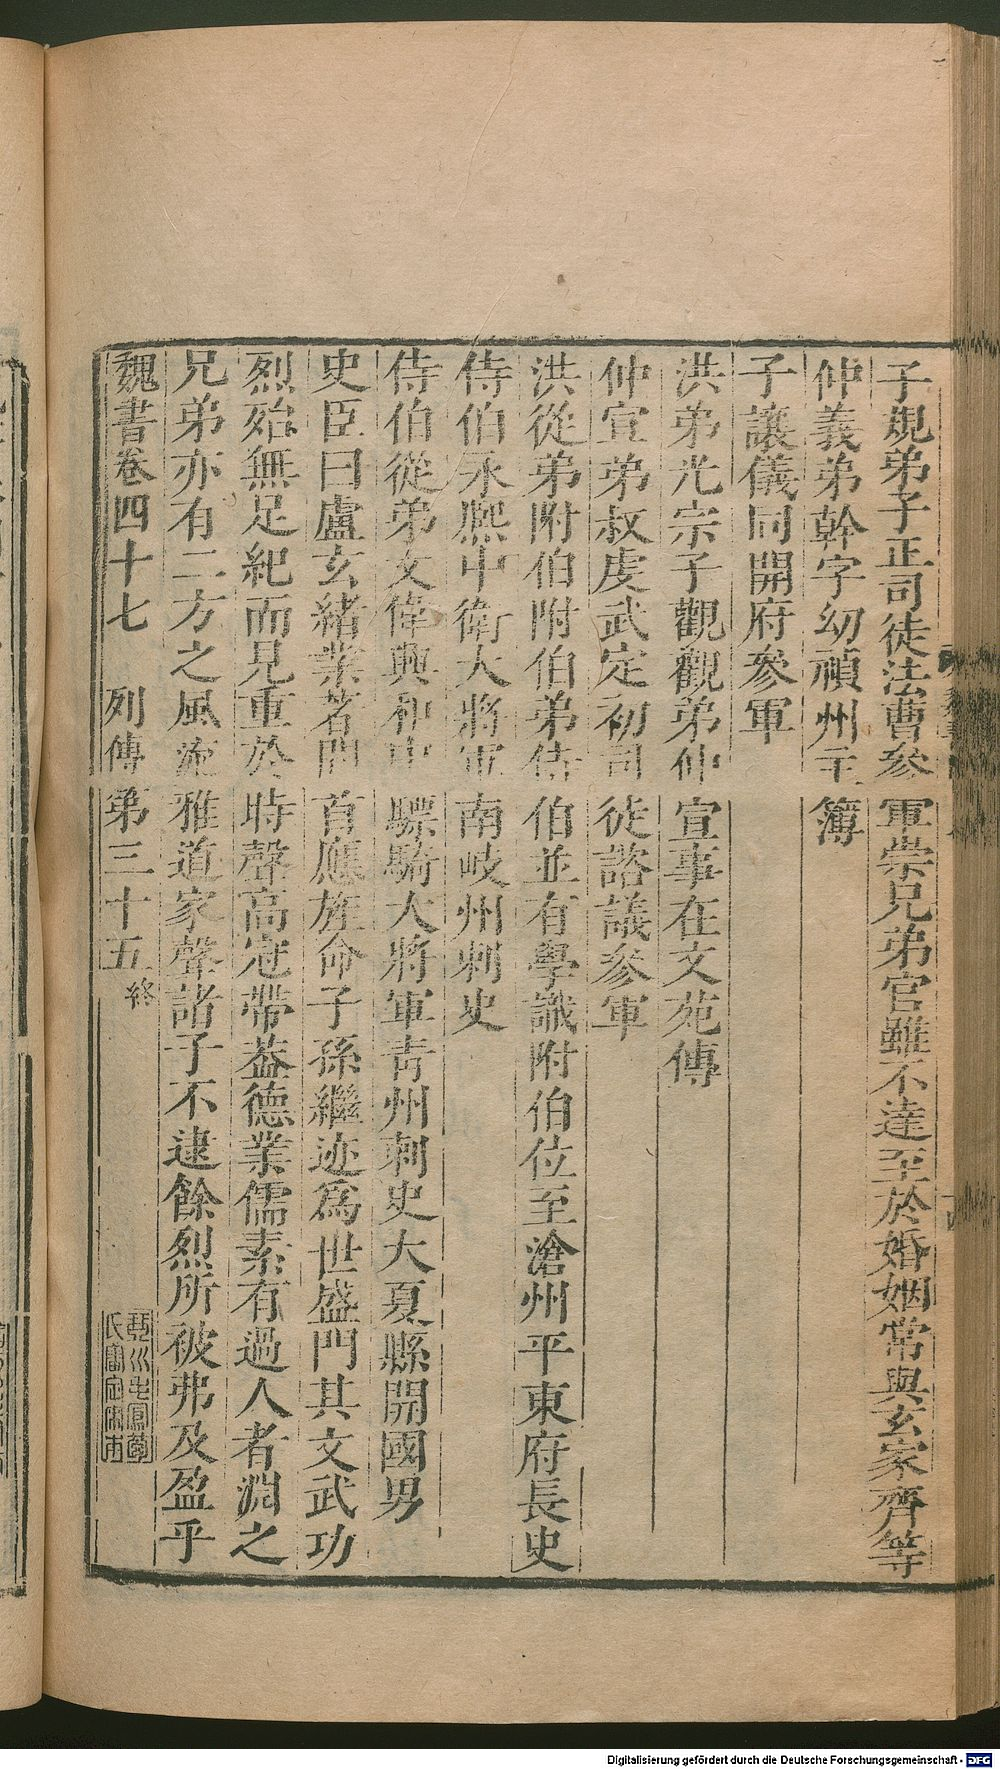 子規弟子正司徒法曹參軍崇兄弟官雖不達至於婚姻常與玄家齊等
仲義弟幹字幼禎州主簿
子讓儀同開府參軍
洪弟光宗子觀觀弟仲宣事在文苑傳
仲宣弟叔虔武定初司徒諮議參軍
洪從弟附伯附伯弟侍伯並有學識附伯位至滄州平東府長史
侍伯永熈中衛大將軍南岐州刺史
侍伯從弟文偉興和中驃騎大將軍靑州刺史大夏縣開國男
史臣曰盧玄緒業著聞首應旌命子孫繼迹爲世盛門其文武功
烈殆無足紀而見重於時聲高冠帶葢德業儒素有過人者淵之
兄弟亦有二方之風流雅道家聲諸子不逮餘烈所被弗及盈乎
魏書卷四十七 列傳第三十五終
琴川毛鳳苞
氏審定宋本
Digitalisierung gefördert durch die Deutsche Forschungsgemeinschaft - DFG